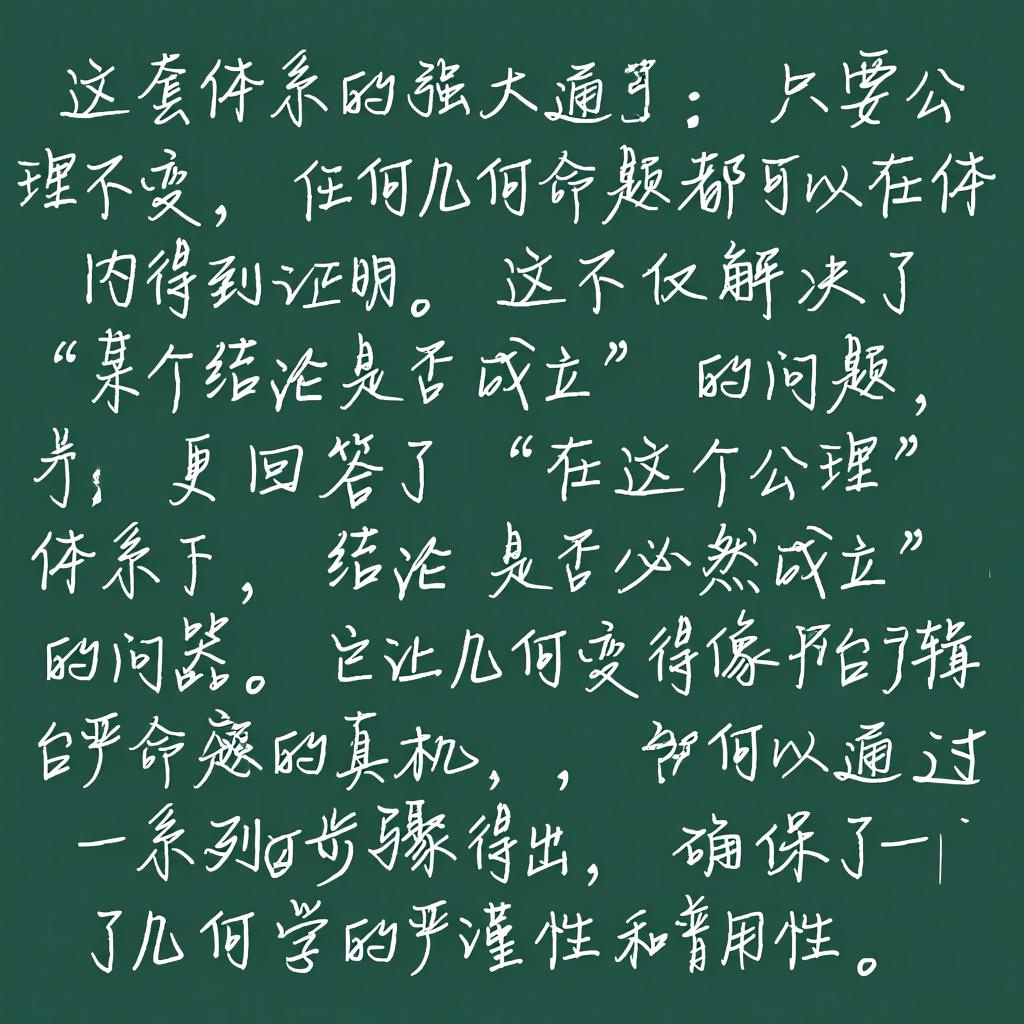 这套体系的强大通：只要公
理不变，任何几何命题都可以在体
内得到证明。这不仅解决了
“某个结论是否成立”的问题，
更回答了“在这个公理”
体系下，结论是否必然成立”
的问。它让几何变得像辑
严命的真机，，何以通过
一系列步骤得出，确保了一
了几何学的严谨性和普用性。